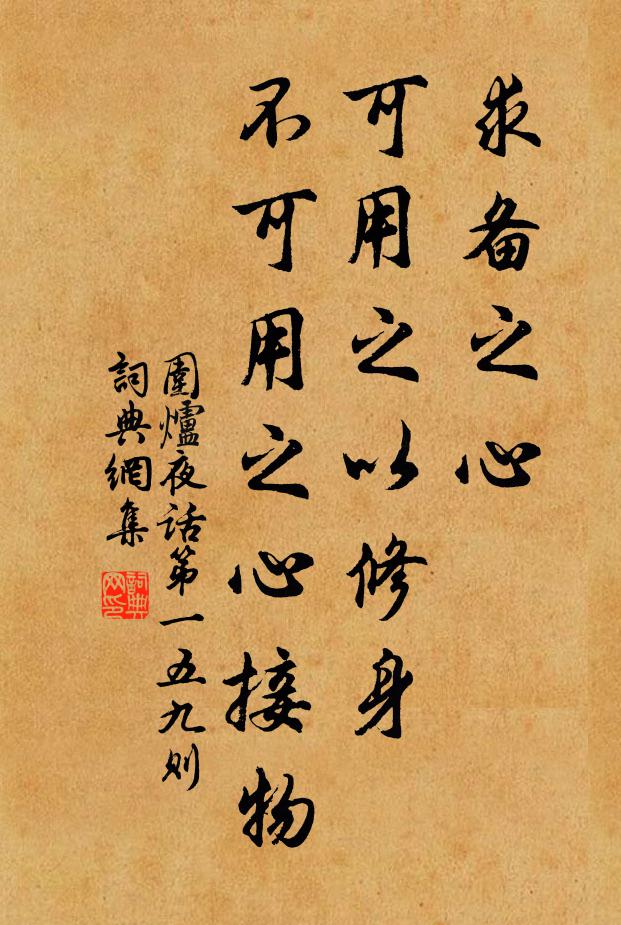 求备之心
可用之以修身
不可用之心接物
圍爐夜话第一五九则
詞典網集
詞典
网印